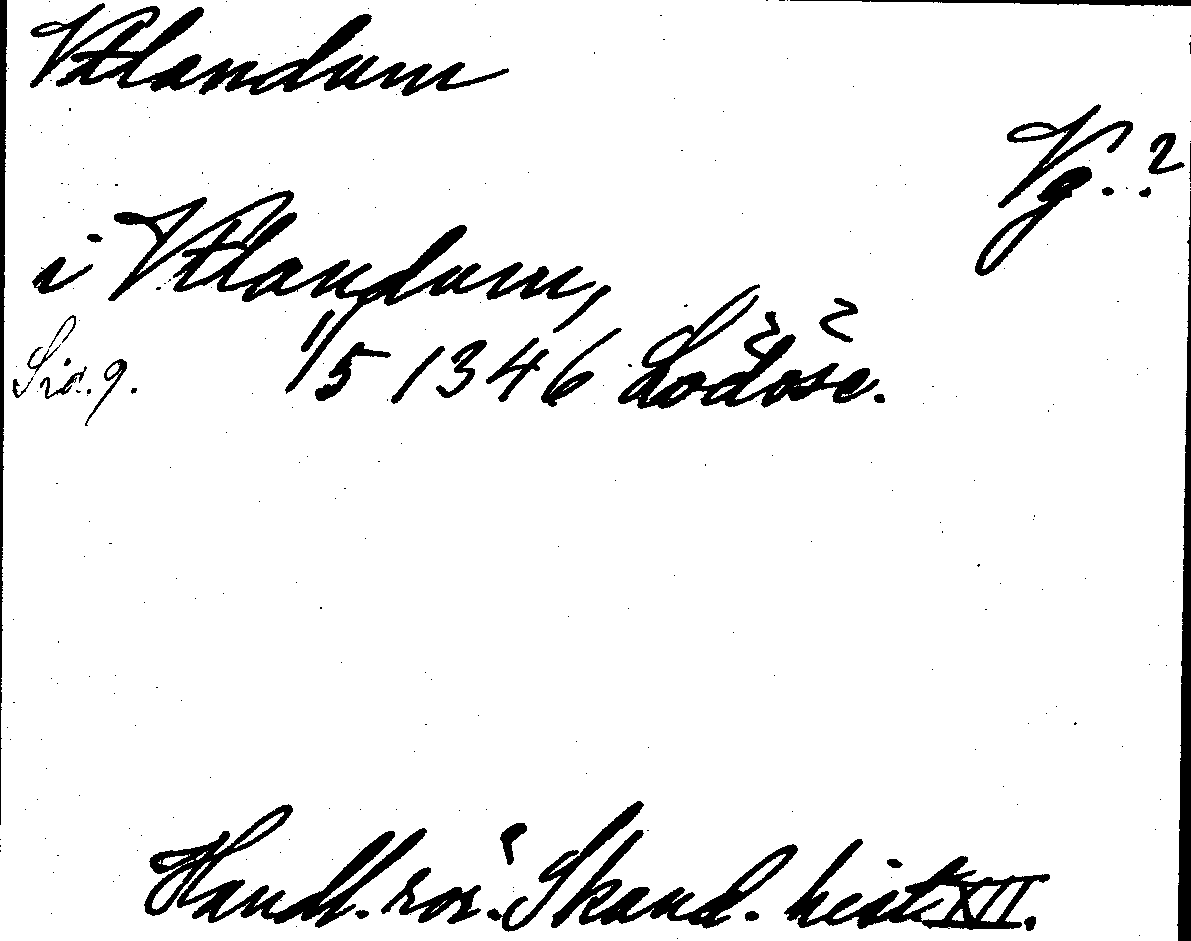 Vtlandum
Vg. ?
i Vtlandum,
Sid. 9. 1/5 1346 Lödöse.
Handl. rör. Skand. hist. XII.